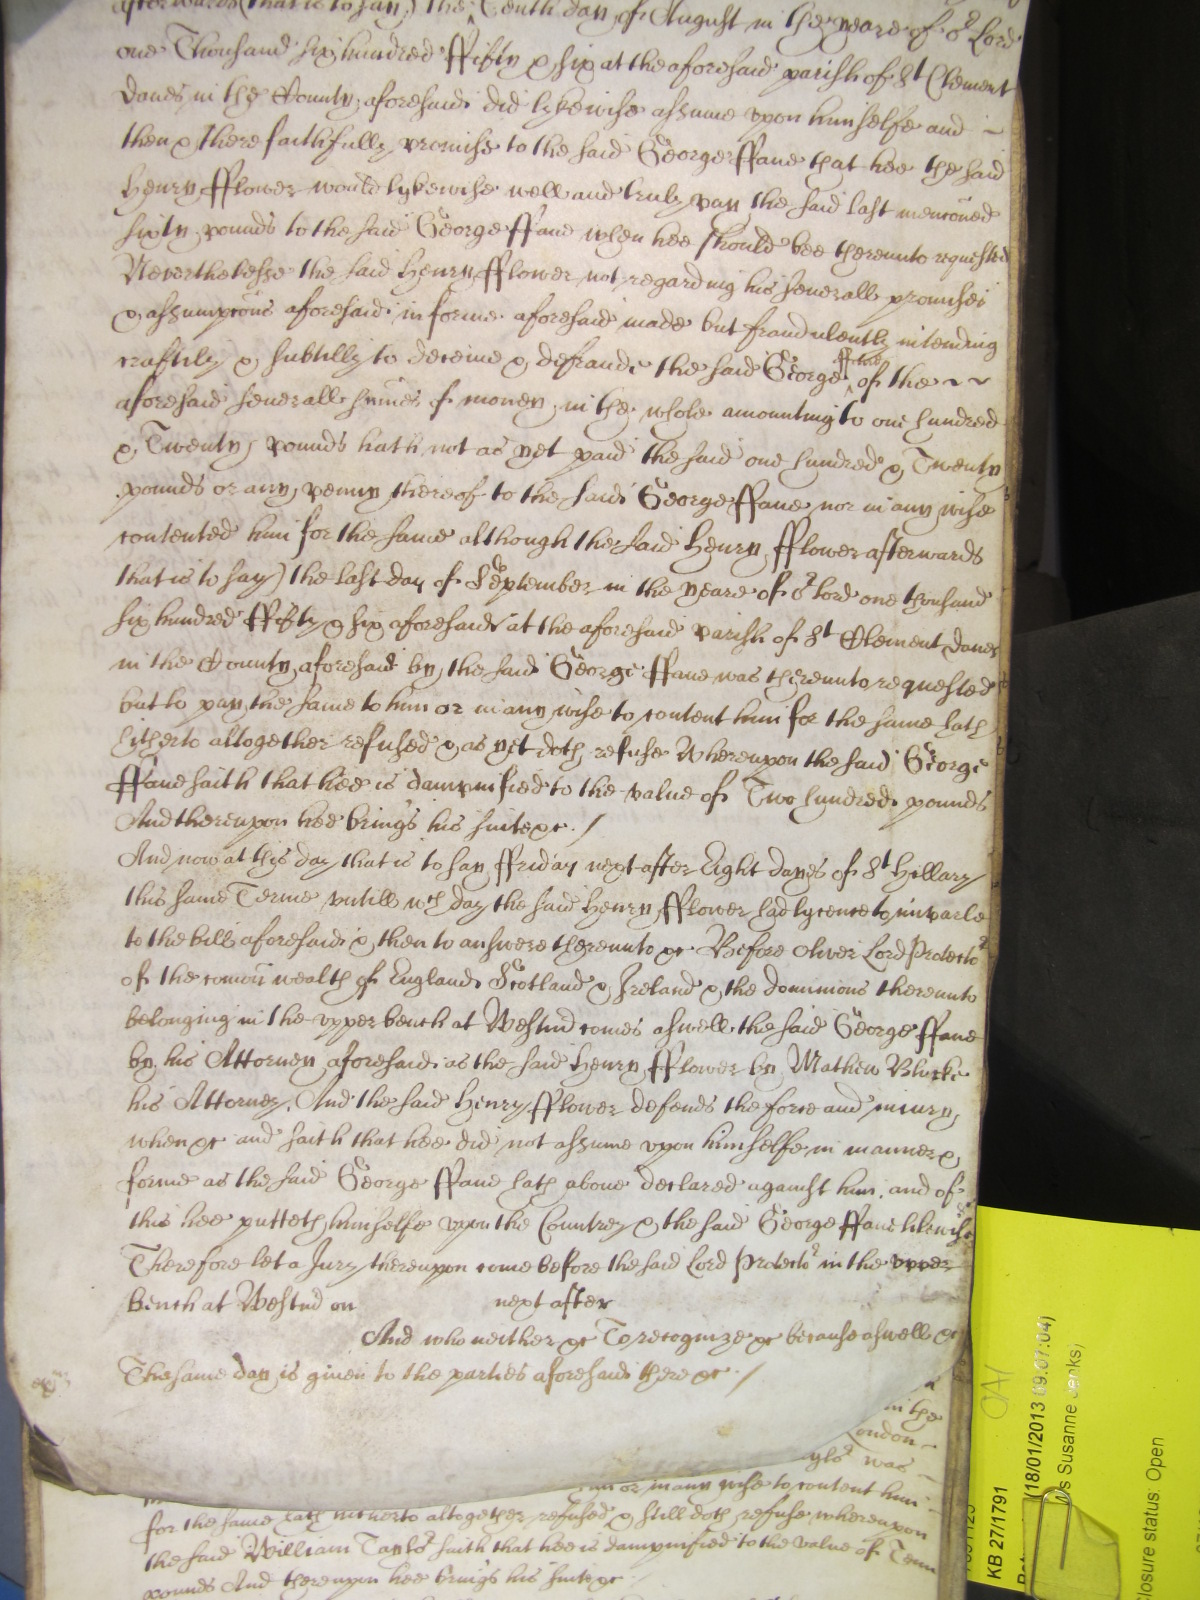 afterwards (that is to say) the Tenth day of August in the yeare of or Lord
one Thousand six hundred ffifty & six at the aforesaid parish of St Clement
Danes in the County aforesaid did lykewise assume vpon himselfe and
then & there faithfully promise to the said George ffane that hee the said
Henry fflower would lykewise well and truly pay the said last menconed
sixty pounds to the said George ffane when hee should bee thereunto requested
Neverthelesse the said Henry fflower not regarding his seuerall promises
& assumpcons aforesaid in forme aforesaid made but fraudulently intending
craftily & subtilly to deceiue & defraude the said George ffane of the
aforesaid seuerall summes of money in the whole amounting to one hundred
& Twenty pounds hath not as yet paid the said one hundred & Twenty
pounds or any penny thereof to the said George ffane nor in any wise
contented him for the same although the said Henry fflower afterwards
that is to say) the last day of September in the yeare of or Lord one thousand
six hundred ffifty & six aforesaid at the aforesaid parish of St Clement danes
in the County aforesaid by the said George ffane was thereunto requested
but to pay the same to him or in any wise to content him for the same hath
hitherto altogether refused & as yet doth refuse Whereupon the said George
ffane saith that hee is dampnified to the value of Two hundred pounds
And thereupon hee brings his suite &c. /
And now at this day that is to say ffriday next after Eight dayes of St Hillary
this same Terme vntill wch day the said Henry fflower had lycence to imparle
to the bill aforesaid & then to answere thereunto &c Before Oliver Lord Protector
of the comon wealth of England Scotland & Ireland & the dominions thereunto
belonging in the vpper bench at Westmd comes aswell the said George ffane
by his Attorney aforesaid as the said Henry fflower by Mathew Blucke
his Attorney. And the said Henry fflower defends the force and iniury
when &c and saith that hee did not assume vpon himselfe in manner &
forme as the said George ffane hath above declared against him. and of
this hee putteth himselfe vpon the Countrey & the said George ffane likewise
Therefore let a Jury thereupon come before the said Lord Protector in the vpper
bench at Westmd on next after
And who neither &c To recognize &c because aswell &c
The same day is given to the parties aforesaid there &c. /
in the
London
was
or in any wise to content him
for the same hath hitherto altogether refused & still doth refuse whereupon
the said William Taylor saith that hee is dampnified to the value of Tenn
pounds And thereupon hee brings his suite &c
KB 27/1791
(18/01/2013 09:07:04)
Ms Susanne Jenks)
losure status: Open